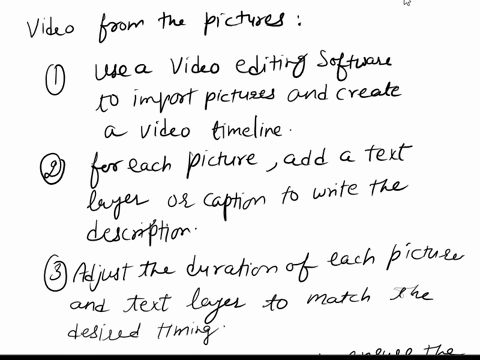 Video from the pictures:
① Use a Video editing Software
to import pictures and create
a video timeline.
② for each picture, add a text
layer or caption to write the
description.
③ Adjust the duration of each picture
and text layer to match the
desired timing.
ensure the